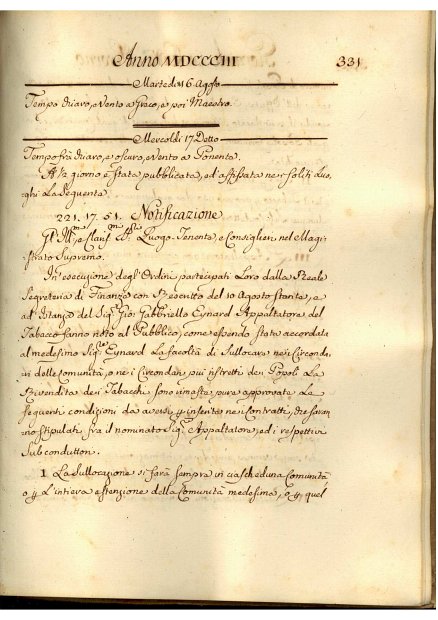 Anno MDCCCIII 331
Martedi 16 Agosto
Tempo chiaro, e Vento a Greco, e poi Maestro.
Mercoldì 17 Detto
Tempo frà chiaro, e oscuro, e Vento a Ponente.
A ½ giorno è stata pubblicata, ed affissata nei soliti Luo-
ghi La Seguente
221. 17. 51. Notificazione
Gl' Ill.mi, e Clariss.mi SS.ri Luogo-Tenente, e Consiglieri nel Magi-
strato Supremo.
In esecuzione degl' Ordini partecipati Loro dalla Reale
Segreteria di Finanze con Rescritto del 10 Agosto stante, e
ad istanza del Sig.re Gio: Gabbriello Eynard Appaltatore del
Tabacco fanno noto al Pubblico, come essendo stata accordata
al medesimo Sig.re Eynard La facoltà di Sullocare nei Circonda-
ri delle Comunità, o ne i Circondari più ristretti dei Popoli La
Rivendita dei Tabacchi sono rimaste pure approvate Le
seguenti condizioni da aversi p inserite nei Contratti, che saran-
no stipulati fra il nominato Sig.re Appaltatore, ed i respettivi
Subconduttori.
1 La Sullocazione si farà sempre in ciascheduna Comunità,
o p L'intiera estenzione della Comunità medesima, o p quel